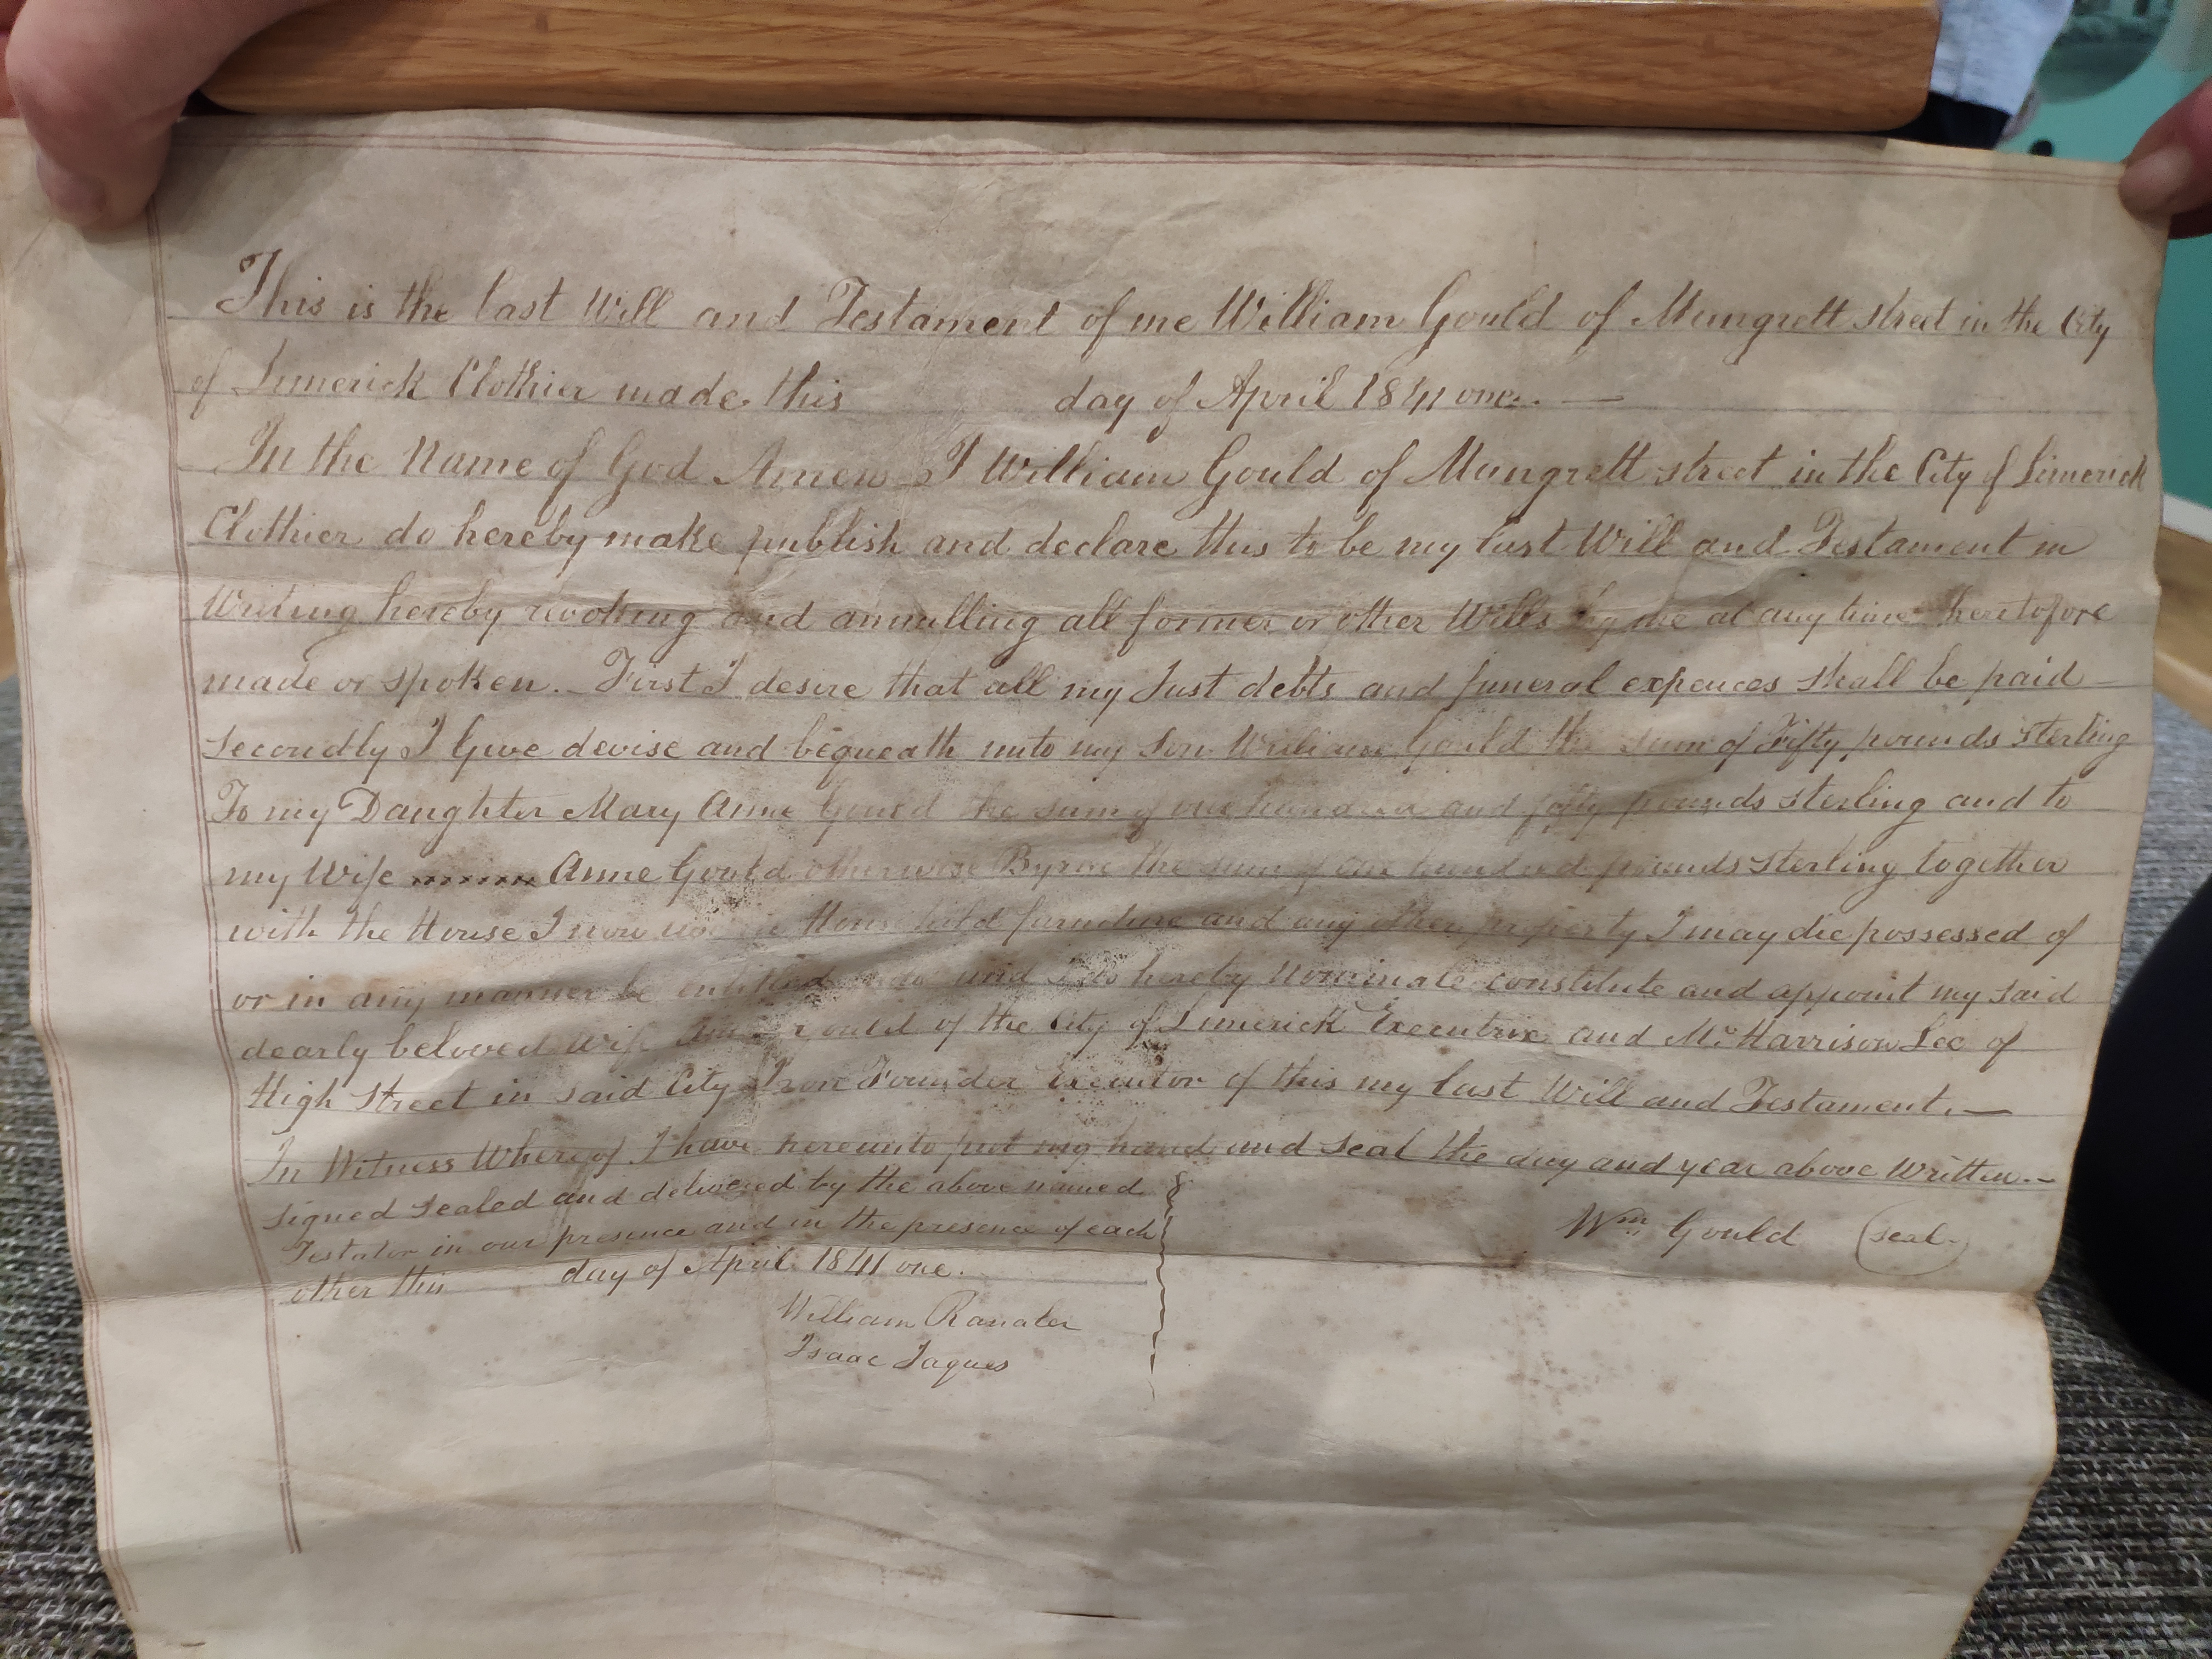 This is the last Will and Testament of me William Gould of Mungrett street in the City
of Limerick Clothier made this day of April 1841 one. —
In the Name of God Amen I William Gould of Mungrett street in the City of Limerick
Clothier do hereby make publish and declare this to be my last Will and Testament in
Writing hereby revoking and annulling all former or other Wills by me at any time heretofore
made or spoken. First I desire that all my Just debts and funeral expences shall be paid —
Secondly I Give devise and bequeath unto my Son William Gould the sum of Fifty pounds sterling
To my Daughter Mary Anne Gould the sum of one hundred and fifty pounds sterling and to
my Wife Anne Gould otherwise Byrne the sum of one hundred pounds sterling together
with the House I now House hold furniture and any other property I may die possessed of
or in any manner be entitled and I do hereby Nominate constitute and appoint my said
dearly beloved Wife Anne Gould of the City of Limerick Executrix and Mr. Harrison Lee of
High Street in said City Iron Founder Executor of this my last Will and Testament. —
In Witness Whereof I have hereunto put my hand and seal the day and year above Written. —
Signed Sealed and delivered by the above named
Testator in our presence and in the presence of each
other this day of April 1841 one.
Wm Gould (seal)
William
Isaac Jaques